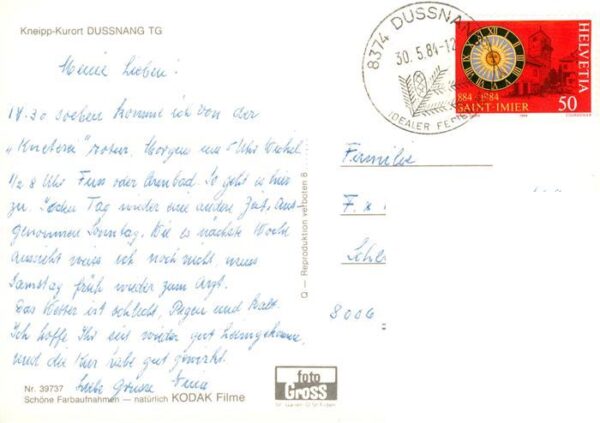 Kneipp-Kurort DUSSNANG TG
Meine Lieben!
14.30 soeben komme ich von der
"Kneterei" retour. Morgen um 5 Uhr Wickel
1/2 8 Uhr Fuss oder Armbad. So geht es hier
zu. Jeden Tag wieder eine andere Zeit. Aus-
genommen Sonntag. Wie es nächste Woche
aussieht weiss ich noch nicht, muss
Samstag früh wieder zum Arzt.
Das Wetter ist schlecht, Regen und kalt.
Ich hoffe Ihr seit wieder gut heimgekommen,
und die Kur habe gut gewirkt.
Liebe Grüsse
Nr. 39737
Schöne Farbaufnahmen — natürlich KODAK Filme
Q — Reproduktion verboten 8
foto
Gross
8374 DUSSNANG
30.5.84-12
IDEALER FERIEN
884-1984
SAINT-IMIER
HELVETIA
50
Familie
F.
8006